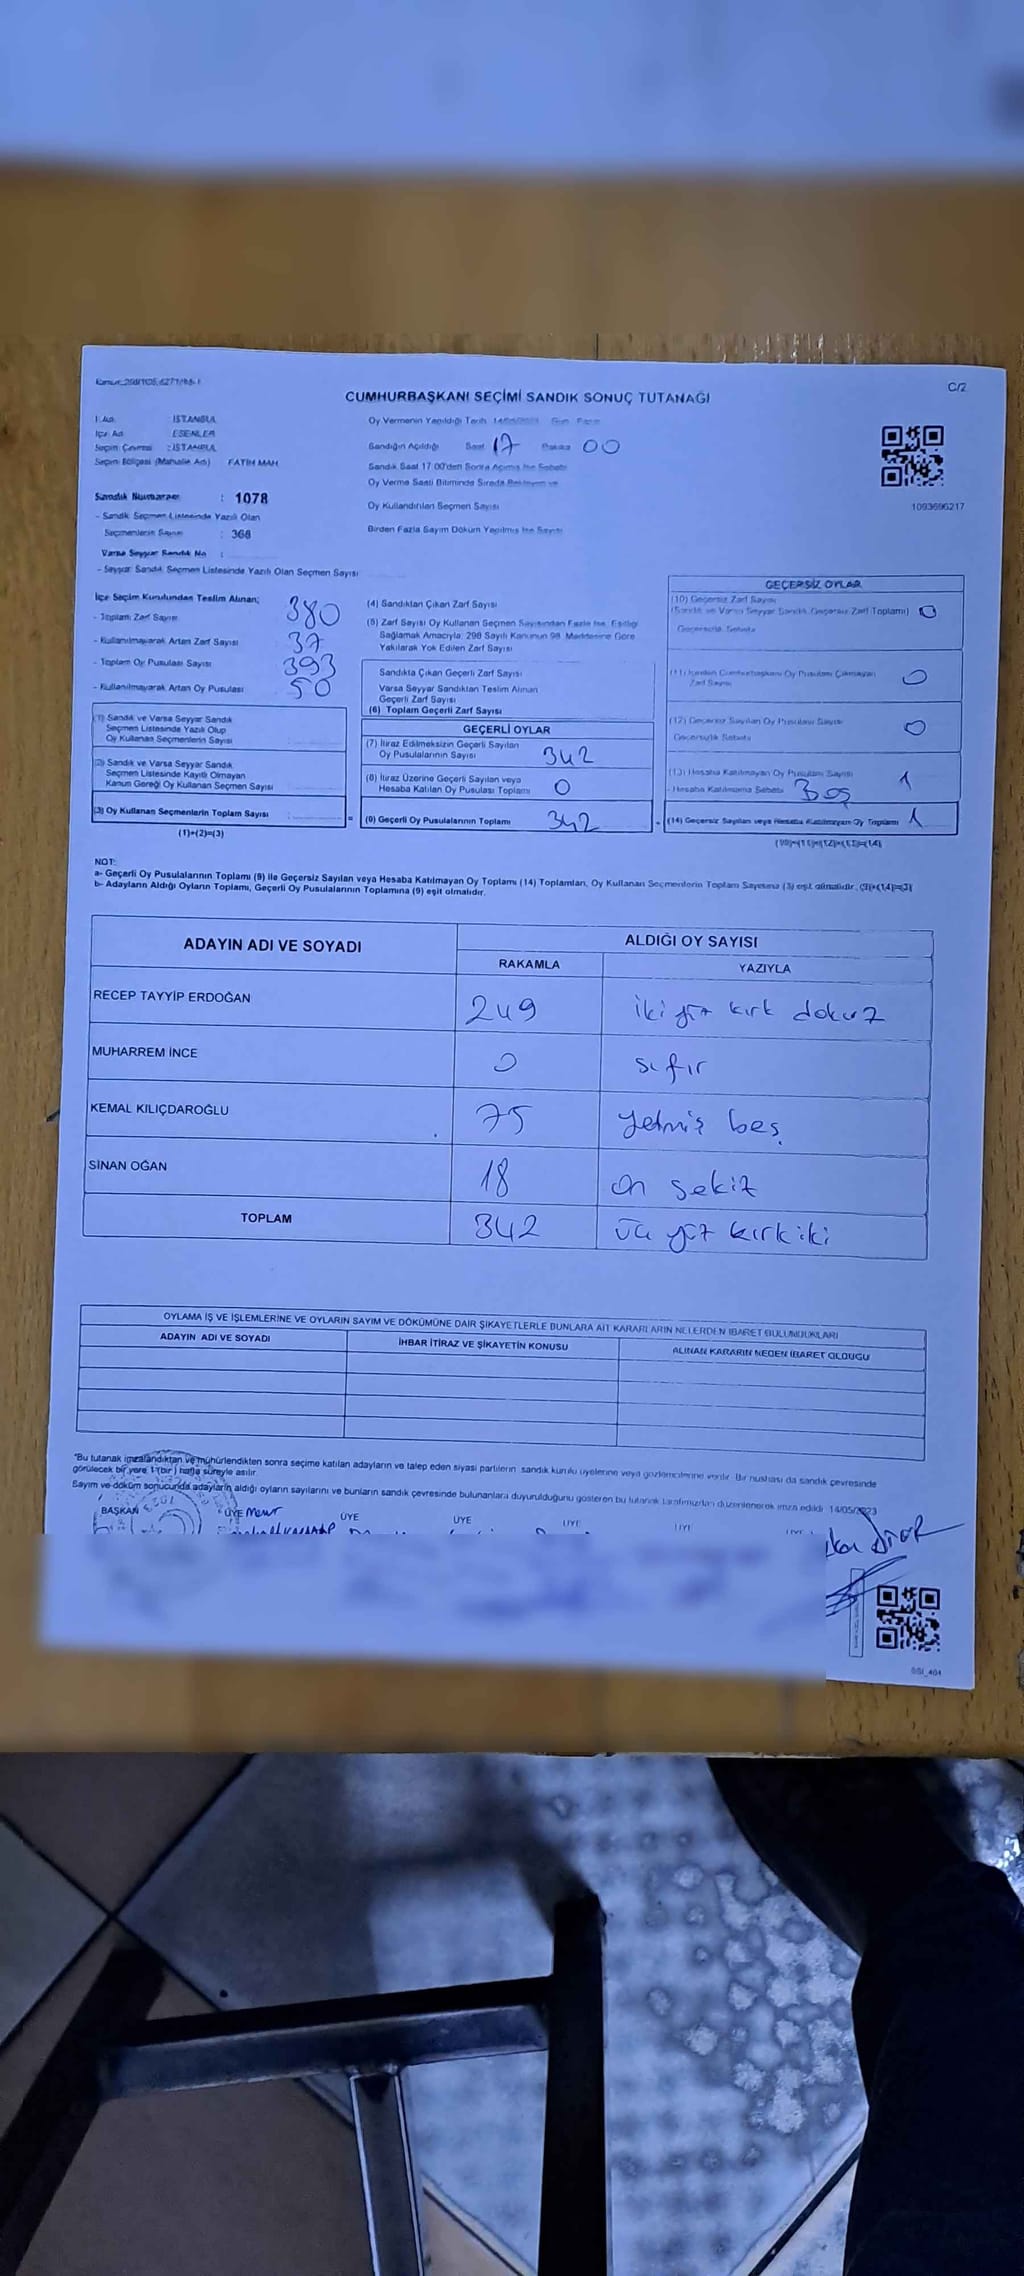 C/2
CUMHURBAŞKANI SEÇİMİ SANDIK SONUÇ TUTANAĞI
İl Adı : İSTANBUL
İlçe Adı : ESENLER
Seçim Çevresi : İSTANBUL
Seçim Bölgesi (Mahalle Adı) FATİH MAH
Sandık Numarası : 1078
- Sandık Seçmen Listesinde Yazılı Olan
Seçmenlerin Sayısı : 368
Varsa Seyyar Sandık No :
- Seyyar Sandık Seçmen Listesinde Yazılı Olan Seçmen Sayısı
Oy Vermenin Yapıldığı Tarih 14/05/2023 Gün Pazar
Sandığın Açıldığı Saat 17 Dakika 00
Sandık Saat 17.00'den Sonra Açılmış İse Sebebi
Oy Verme Saati Bitiminde Sırada Bekleyen ve
Oy Kullandırılan Seçmen Sayısı
Birden Fazla Sayım Döküm Yapılmış İse Sayısı
1093696217
İlçe Seçim Kurulundan Teslim Alınan;
- Toplam Zarf Sayısı 380
- Kullanılmayarak Artan Zarf Sayısı 37
- Toplam Oy Pusulası Sayısı 393
- Kullanılmayarak Artan Oy Pusulası 50
(1) Sandık ve Varsa Seyyar Sandık
Seçmen Listesinde Yazılı Olup
Oy Kullanan Seçmenlerin Sayısı
(2) Sandık ve Varsa Seyyar Sandık
Seçmen Listesinde Kayıtlı Olmayan
Kanun Gereği Oy Kullanan Seçmen Sayısı
(3) Oy Kullanan Seçmenlerin Toplam Sayısı :
(1)+(2)=(3)
(4) Sandıktan Çıkan Zarf Sayısı
(5) Zarf Sayısı Oy Kullanan Seçmen Sayısından Fazla İse, Eşitliği
Sağlamak Amacıyla, 298 Sayılı Kanunun 98. Maddesine Göre
Yakılarak Yok Edilen Zarf Sayısı
Sandıkta Çıkan Geçerli Zarf Sayısı
Varsa Seyyar Sandıktan Teslim Alınan
Geçerli Zarf Sayısı
(6) Toplam Geçerli Zarf Sayısı
GEÇERLİ OYLAR
(7) İtiraz Edilmeksizin Geçerli Sayılan
Oy Pusulalarının Sayısı 342
(8) İtiraz Üzerine Geçerli Sayılan veya
Hesaba Katılan Oy Pusulası Toplamı 0
= (9) Geçerli Oy Pusulalarının Toplamı 342
GEÇERSİZ OYLAR
(10) Geçersiz Zarf Sayısı
(Sandık ve Varsa Seyyar Sandık Geçersiz Zarf Toplamı) 0
Geçersizlik Sebebi
(11) İçinden Cumhurbaşkanı Oy Pusulası Çıkmayan
Zarf Sayısı 0
(12) Geçersiz Sayılan Oy Pusulası Sayısı 0
Geçersizlik Sebebi
(13) Hesaba Katılmayan Oy Pusulası Sayısı 1
- Hesaba Katılmama Sebebi Boş
+ (14) Geçersiz Sayılan veya Hesaba Katılmayan Oy Toplamı 1
(10)+(11)+(12)+(13)=(14)
NOT:
a- Geçerli Oy Pusulalarının Toplamı (9) ile Geçersiz Sayılan veya Hesaba Katılmayan Oy Toplamı (14) Toplamları, Oy Kullanan Seçmenlerin Toplam Sayısına (3) eşit olmalıdır. (9)+(14)=(3)
b- Adayların Aldığı Oyların Toplamı, Geçerli Oy Pusulalarının Toplamına (9) eşit olmalıdır.
ADAYIN ADI VE SOYADI ALDIĞI OY SAYISI
RAKAMLA YAZIYLA
RECEP TAYYİP ERDOĞAN 249 iki yüz kırk dokuz
MUHARREM İNCE 0 sıfır
KEMAL KILIÇDAROĞLU 75 yetmiş beş
SİNAN OĞAN 18 on sekiz
TOPLAM 342 üç yüz kırk iki
OYLAMA İŞ VE İŞLEMLERİNE VE OYLARIN SAYIM VE DÖKÜMÜNE DAİR ŞİKAYETLERLE BUNLARA AİT KARARLARIN NELERDEN İBARET BULUNDUKLARI
ADAYIN ADI VE SOYADI İHBAR İTİRAZ VE ŞİKAYETİN KONUSU ALINAN KARARIN NEDEN İBARET OLDUĞU
*Bu tutanak imzalandıktan ve mühürlendikten sonra seçime katılan adayların ve talep eden siyasi partilerin sandık kurulu üyelerine veya gözlemcilerine verilir. Bir nüshası da sandık çevresinde
görülecek bir yere 1 (bir) hafta süreyle asılır.
Sayım ve döküm sonucunda adayların aldığı oyların sayılarını ve bunların sandık çevresinde bulunanlara duyurulduğunu gösteren bu tutanak tarafımızdan düzenlenerek imza edildi. 14/05/2023
BAŞKAN ÜYE ÜYE ÜYE ÜYE ÜYE